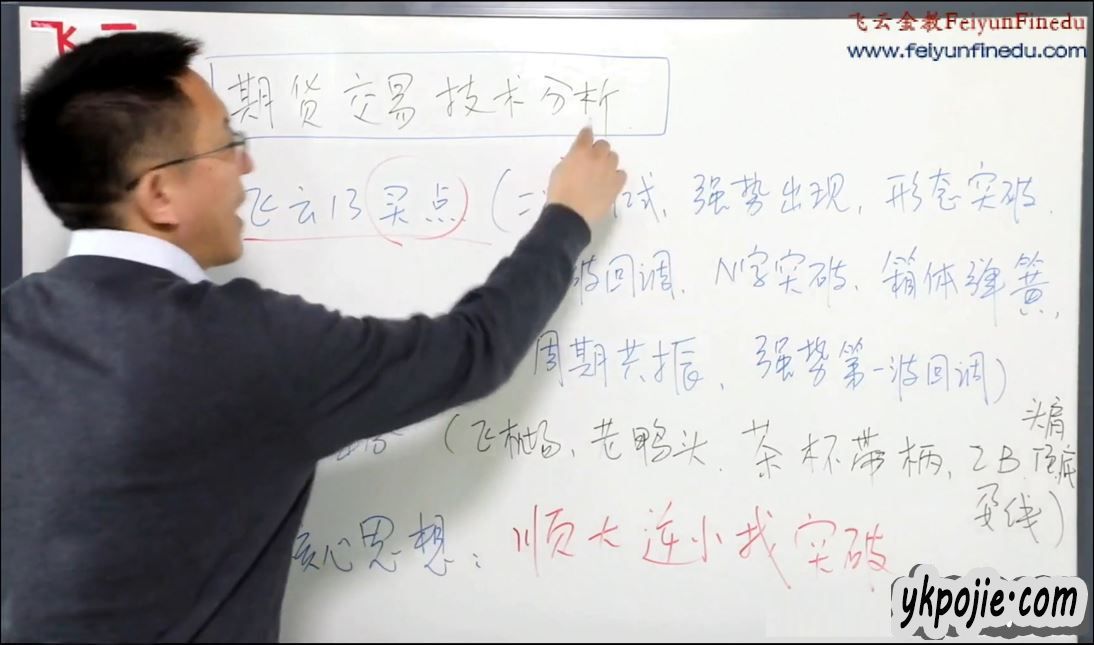 飞云金教FeiyunFinedu
www.feiyunfinedu.com
飞云
期货交易技术分析
飞云13买点(二 试、强势出现,形态突破、
波回调、N字突破、箱体弹簧,
周期共振、强势第一波回调)
(飞机场、老鸭头、茶杯带柄,2B
头肩
顶底
线)
核心思想:顺大逆小找突破
ykpojie.com